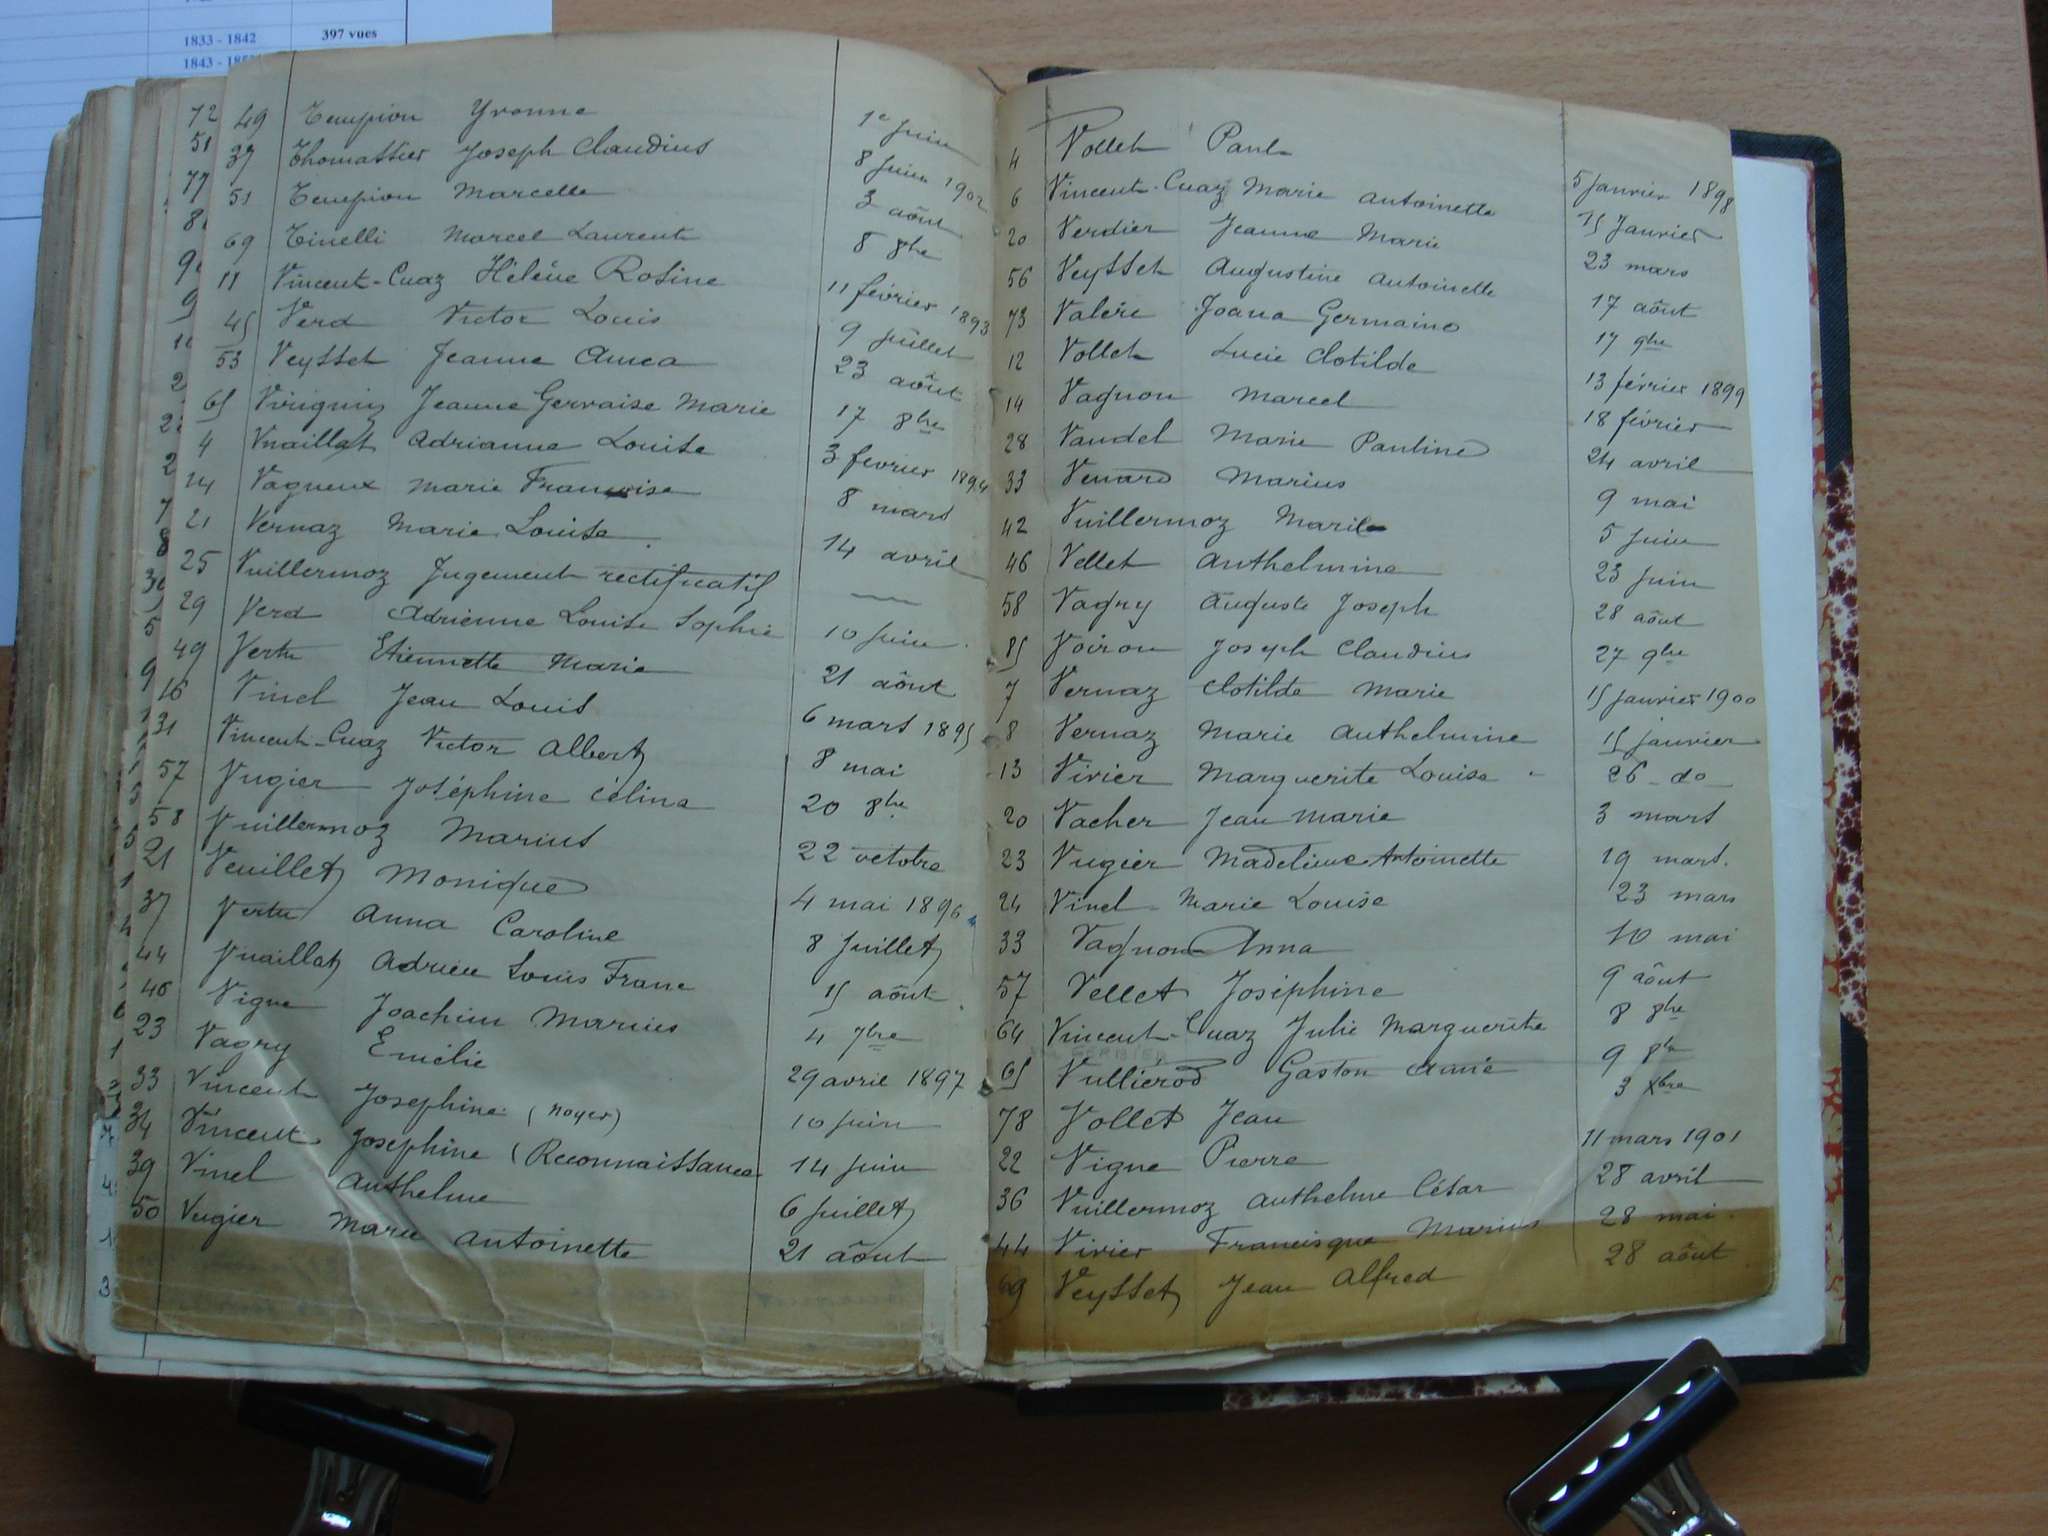 1833 - 1842 397 vues
1843 -
49 Tempion Yvonne 1e Juin
37 Thomassier Joseph Claudius 8 Juin 1902
51 Tempion Marcelle 3 août
69 Tinelli Marcel Laurent 8 8bre
11 Vincent-Cuaz Hélène Rosine 11 février 1893
45 Verd Victor Louis 9 Juillet
53 Veysset Jeanne 23 août
65 Jeanne Gervaise Marie 17 8bre
4 Vuaillat Adrianne Louise 3 février 1894
14 Vagneux Marie Françoise 8 mars
21 Vernaz Marie Louise 14 avril
25 Vuillermoz Jugement rectificatif
29 Verd Adrienne Louise Sophie 10 Juin
49 Vertu Etiennette Marie 21 août
16 Vinel Jean Louis 6 mars 1895
31 Vincent-Cuaz Victor Albert 8 mai
57 Vugier Joséphine Célina 20 8bre
58 Vuillermoz Marius 22 octobre
21 Veuillet Monique 4 mai 1896
37 Vertu Anna Caroline 8 Juillet
44 Vuaillat Adrien Louis Franc 15 août
46 Vigne Joachim Marius 4 7bre
23 Vagry Emélie 29 avril 1897
33 Vincent Josephine (Noyer) 10 Juin
34 Vincent Josephine (Reconnaissance 14 Juin
39 Vinel Anthelme 6 Juillet
50 Vugier Marie Antoinette 21 août
4 Vollet Paul 5 Janvier 1898
6 Vincent-Cuaz Marie Antoinette 15 Janvier
20 Verdier Jeanne Marie 23 mars
56 Veysset Augustine Antoinette 17 août
73 Valéri Joana Germaine 17 9bre
12 Vollet Lucie Clotilde 13 février 1899
14 Vagnon Marcel 18 février
28 Vaudel Marie Pauline 24 avril
33 Venard Marius 9 mai
42 Vuillermoz Marie 5 Juin
46 Vellet Anthelmine 23 Juin
58 Vagry Auguste Joseph 28 août
85 Voiron Joseph Claudius 27 9bre
7 Vernaz Clotilde Marie 15 Janvier 1900
8 Vernaz Marie Anthelmine 15 Janvier
13 Vivier Marguerite Louise 26 do
20 Vacher Jean Marie 3 mars
23 Vugier Madeleine Antoinette 19 mars.
24 Vinel Marie Louise 23 mars
33 Vagnon Anna 10 mai
57 Vellet Joséphine 9 août
64 Vincent-Cuaz Julie Marguerite 8 8bre
65 Vulliérod Gaston Aimé 9 8bre
78 Vollet Jean 3 Xbre
22 Vigne Pierre 11 mars 1901
36 Vuillermoz Anthelme César 28 avril
44 Vivier Francisque Marius 28 mai
69 Veysset Jean Alfred 28 août